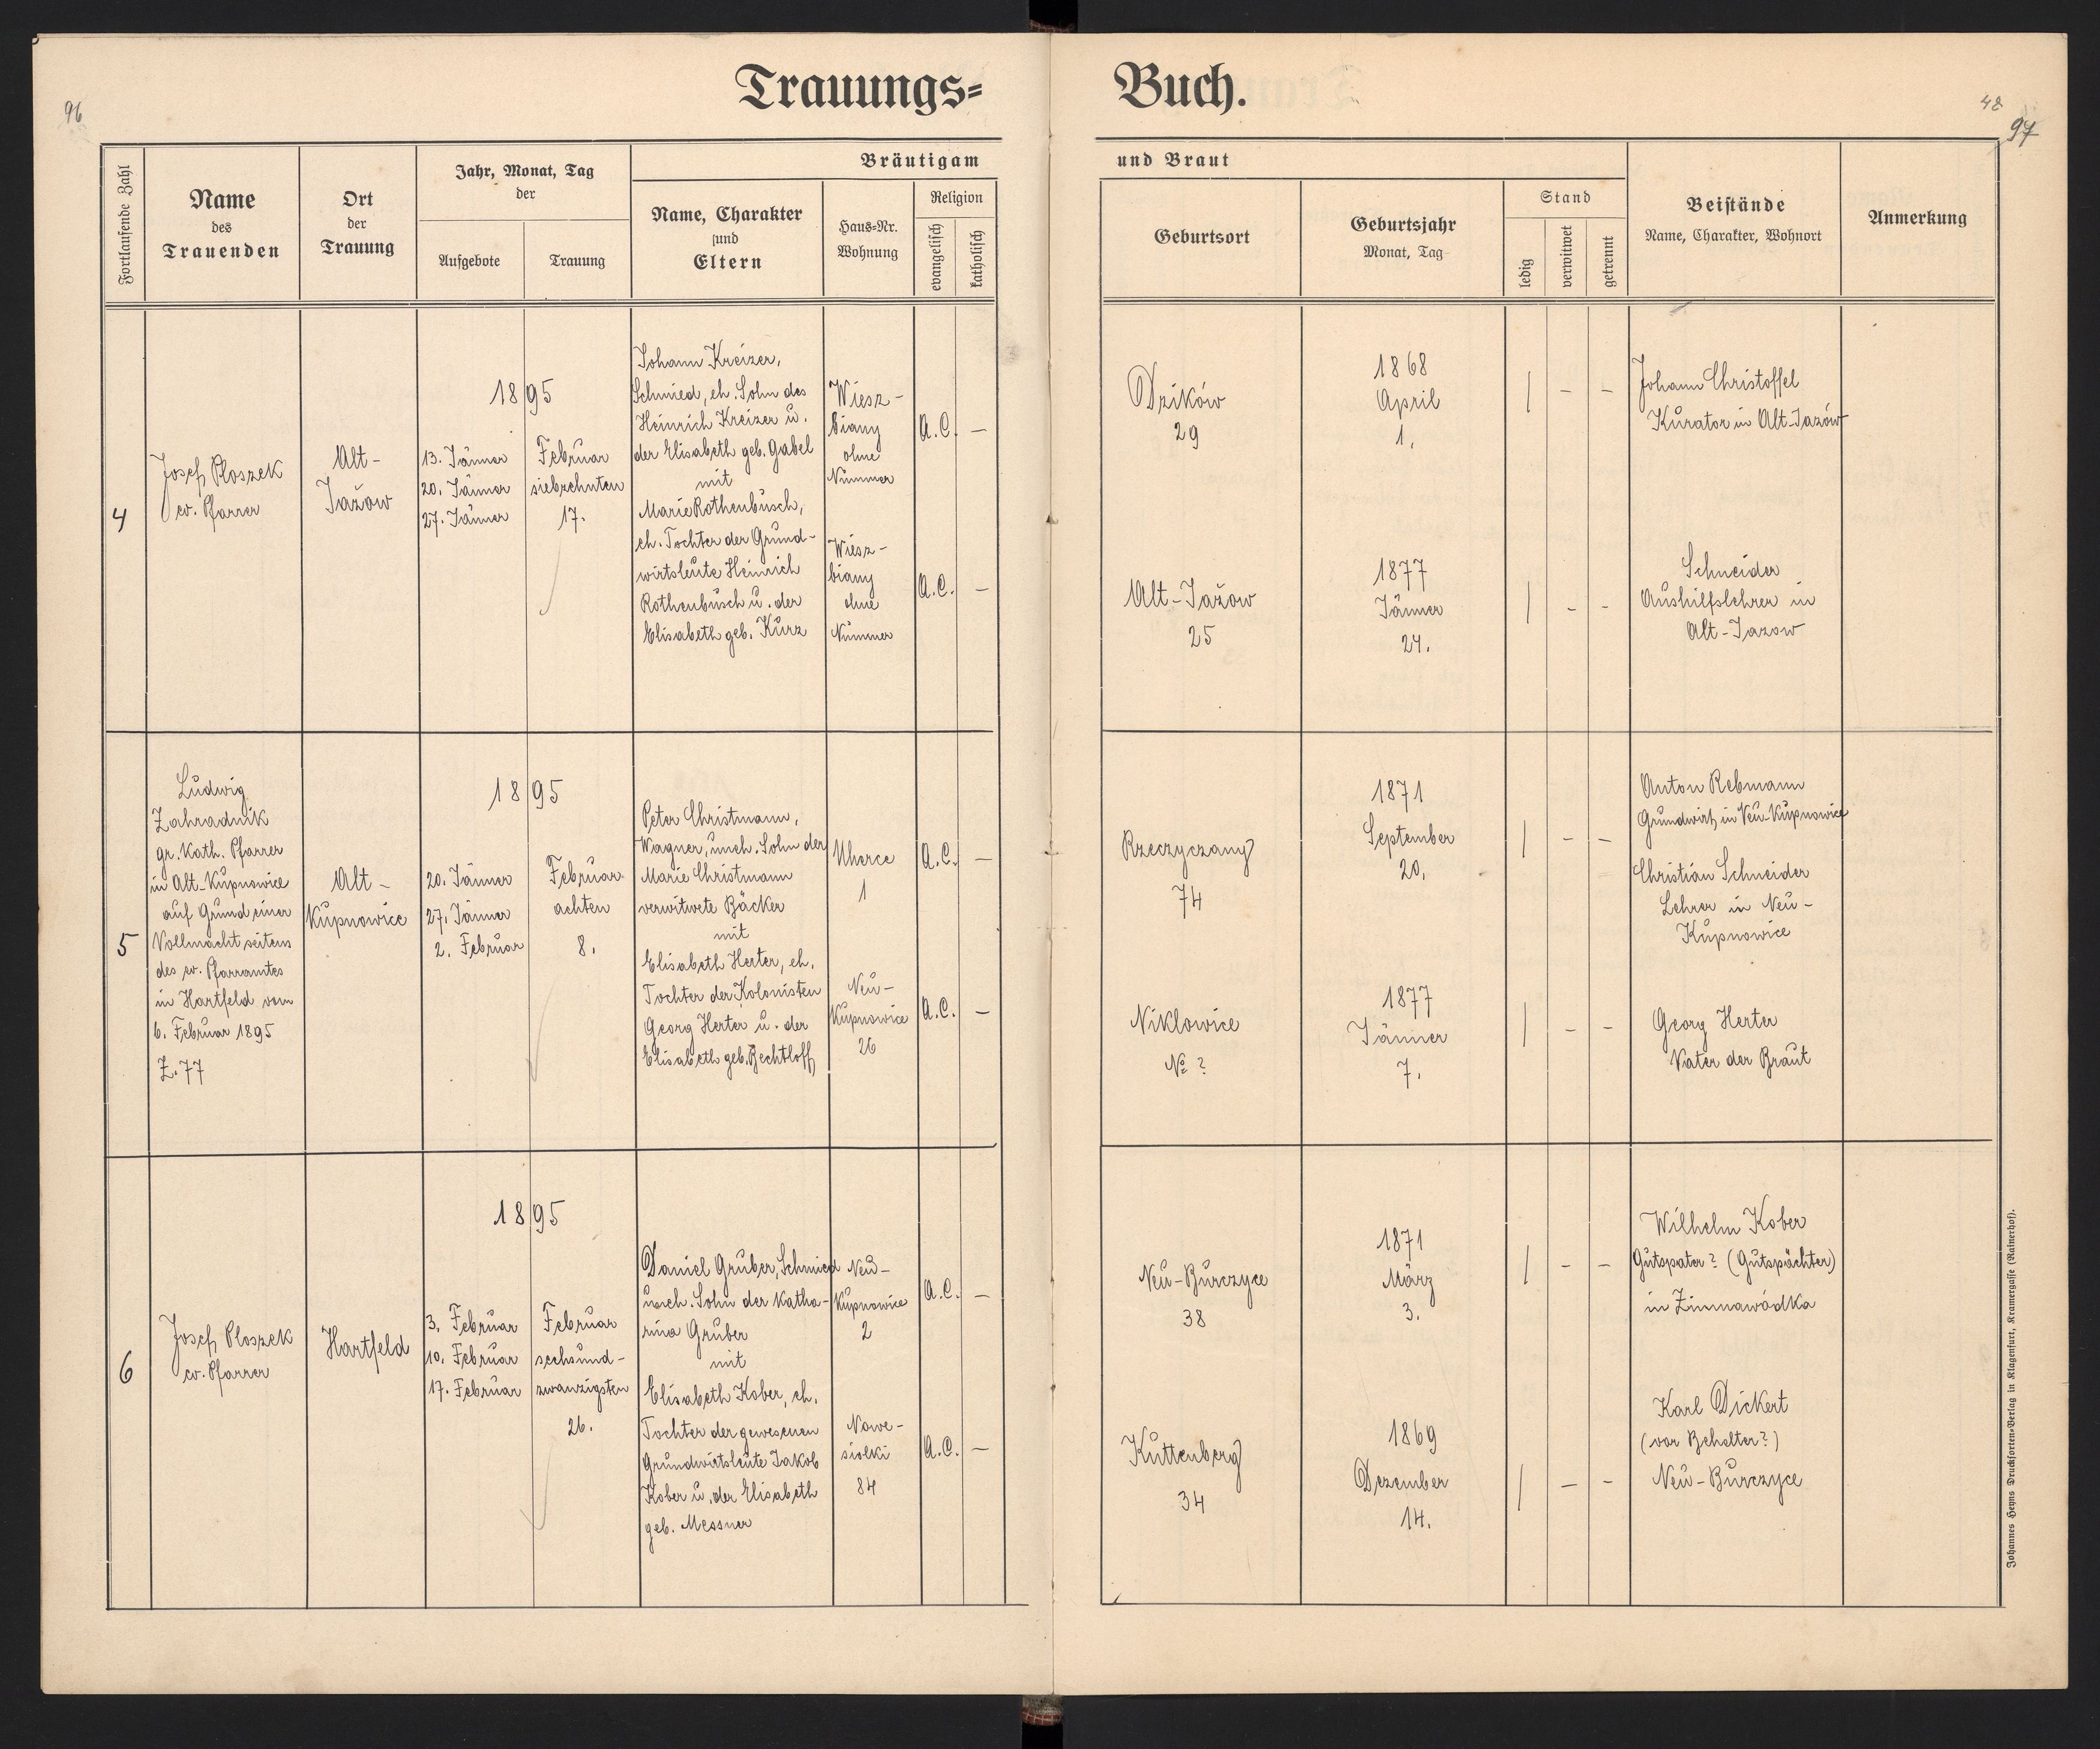 96
Trauungs=
Buch.
48
97
Fortlaufende Zahl
Name
des
Trauenden
Ort
der
Trauung
Jahr, Monat, Tag
der
Aufgebote
Trauung
Bräutigam
Name, Charakter
und
Eltern
Haus=Nr.
Wohnung
Religion
evangelisch
katholisch
und Braut
Geburtsort
Geburtsjahr
Monat, Tag
Stand
ledig
verwitwet
getrennt
Beistände
Name, Charakter, Wohnort
Anmerkung
4
Josef Ploszek
ev. Pfarrer
Alt-
Jažow
1895
13. Jänner
20. Jänner
27. Jänner
Februar
siebzehnten
17.
Johann Kreizer,
Schmied, eh. Sohn des
Heinrich Kreizer u.
der Elisabeth geb. Gabel
mit
Marie Rothenbusch,
eh. Tochter der Grund-
wirtsleute Heinrich
Rothenbusch u. der
Elisabeth geb. Kurz
Wiesz-
biany
ohne
Nummer
Wiesz-
biany
ohne
Nummer
A.C. –
A.C. –
Dzików
29
Alt-Jažow
25
1868
April
1.
1877
Jänner
24.
/ – –
/ – –
Johann Christoffel
Kurator in Alt-Jazów
Schneider
Aushilfslehrer in
Alt-Jazow
5
Ludwig
Zahradnik
gr. kath. Pfarrer
in Alt-Kupnowice
auf Grund einer
Vollmacht seitens
des ev. Pfarramtes
in Hartfeld vom
6. Februar 1895
Z. 77
Alt-
Kupnowice
1895
20. Jänner
27. Jänner
2. Februar
Februar
achten
8.
Peter Christmann,
Wagner, uneh. Sohn der
Marie Christmann
verwitwete Bäcker
mit
Elisabeth Herter, eh.
Tochter der Kolonisten
Georg Herter u. der
Elisabeth geb. Bechtloff
Uherce
1
Neu-
Kupnowice
26
A.C. –
A.C. –
Rzeczyczany
74
Niklowice
№ ?
1871
September
20.
1877
Jänner
7.
/ – –
/ – –
Anton Rebmann
Grundwirt in Neu-Kupnowice
Christian Schneider
Lehrer in Neu-
Kupnowice
Georg Herter
Vater der Braut
6
Josef Ploszek
ev. Pfarrer
Hartfeld
1895
3. Februar
10. Februar
17. Februar
Februar
sechsund-
zwanzigsten
26.
Daniel Gruber, Schmied
uneh. Sohn der Katha-
rina Gruber
mit
Elisabeth Kober, eh.
Tochter der gewesenen
Grundwirtsleute Jakob
Kober u. der Elisabeth
geb. Messner
Neu-
Kupnowice
2
Nowe-
siolki
84
A.C. –
A.C. –
Neu-Burczyce
38
Kuttenberg
34
1871
März
3.
1869
Dezember
14.
/ – –
/ – –
Wilhelm Kober
Gutspater? (Gutspächter)
in Zimnawódka
Karl Dickert
(vor Behalter?)
Neu-Burczyce
Johannes Heyns Drucksorten=Verlag in Klagenfurt, Kramergasse (Rainerhof).